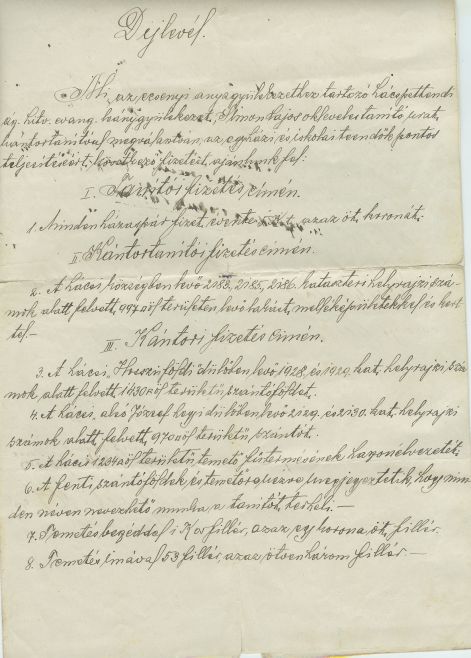 Díjlevél.
Mi, az ecsenyi anyagyülekezethez tartozó hácspettendi
ág. hitv. evang. leánygyülekezet, Simon Lajos okleveles tanitó urat,
kántortanítóvá megválasztván, az egyházi és iskolai teendők pontos
teljesitéséért, következő fizetést ajánlunk fel:
I. Tanítói fizetés címén.
1. Minden házaspár fizet, évente 5 K-t, azaz öt, koronát.
II. Kántortanitói fizetés címén.
2. A hácsi községben levő 2183, 2185, 2186. kataszteri helyrajzi szá-
mok alatt felvett, 997 □öl területen levő lakást, melléképületekkel és kert-
tel.—
III. Kántori fizetés címén.
3. A hácsi, földi dülőben levő 1928. és 1929. kat. helyrajzi szá
mok, alatt felvett, 1430 □öl területü, szántóföldet.
4. A hácsi, alsó József hegyi dülőben levő 2129. és 2130. kat. helyrajzi
számok alatt, felvett, 970 □öl területü, szántót.
5. A hácsi 1234 □öl területü, temető fütermésének haszonélvezetét.
6. A fenti, szántóföldek és temetőre nézve megjegyeztetik, hogy min-
den néven nevezhető munka a tanitót, terheli.—
7. Temetés beszéddel 1 Kor fillér, azaz egy korona, öt, fillér.
8. Temetés imával 53 fillér, azaz ötvenhárom fillér.—